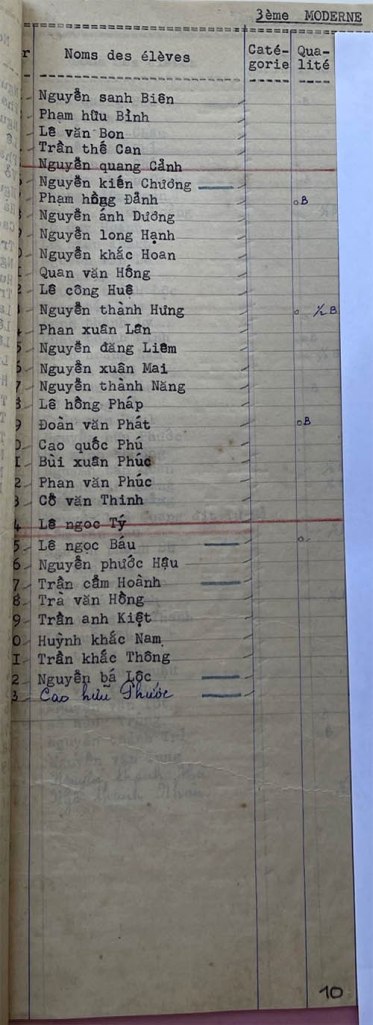 3ème MODERNE
r Noms des élèves Caté- Qua-
gorie lité
Nguyễn sanh Biên
Phạm hữu Bỉnh
Lê văn Bon
Trần thế Can
Nguyễn quang Cảnh
Nguyễn kiến Chương
Phạm hồng Đảnh o B
Nguyễn ánh Dương
Nguyễn long Hạnh
Nguyễn khắc Hoan
I Quan văn Hồng
2 Lê công Huệ
3 Nguyễn thành Hưng o ½ B
4 Phan xuân Lân
5 Nguyễn đăng Liêm
6 Nguyễn xuân Mai
7 Nguyễn thành Năng
8 Lê hồng Pháp
9 Đoàn văn Phát o B
0 Cao quốc Phú
I Bùi xuân Phúc
2 Phan văn Phúc
3 Cỗ văn Thinh
4 Lê ngọc Tý
5 Lê ngọc Báu o
6 Nguyễn phước Hậu
7 Trần cẩm Hoành
8 Trà văn Hồng
9 Trần anh Kiệt
0 Huỳnh khắc Nam
I Trần khắc Thông
2 Nguyễn bá Lộc
3 Cao hữu Phước
10